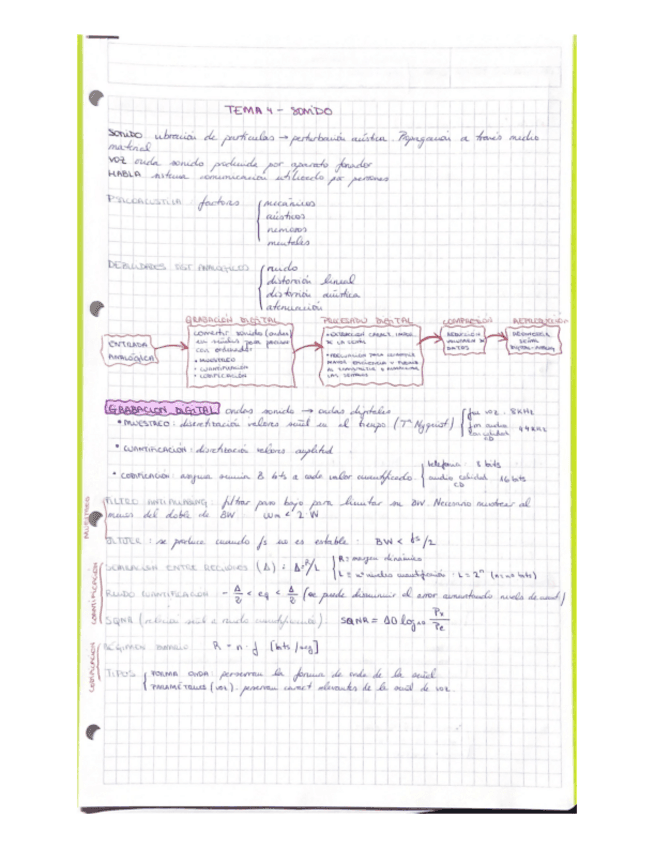 TEMA 4 - SONIDO
SONIDO vibración de partículas → perturbación acústica. Propagación a través medio
material
VOZ onda sonido producida por aparato fonador
HABLA sistema comunicación utilizado por personas
PSICOACUSTICA: factores
mecánicos
acústicos
nerviosos
mentales
DEBILIDADES SIST ANALÓGICOS
ruido
distorsión lineal
distorsión acústica
atenuación
GRABACIÓN DIGITAL
PROCESADO DIGITAL
COMPRESIÓN
REPRODUCCIÓN
ENTRADA
ANALÓGICA
convertir sonidos (ondas)
en señales para procesar
con ordenador
• MUESTREO
• CUANTIFICACIÓN
• CODIFICACIÓN
• EXTRACCIÓN CARACT.
DE LA SEÑAL
REDUCCIÓN
DATOS
SEÑAL
DIGITAL-ANALOG
GRABACIÓN DIGITAL ondas sonido → ondas digitales
• MUESTREO: discretización valores señal en el tiempo (Tª Nyquist)
fm voz: 8KHz
fm audio calidad CD 44KHz
• CUANTIFICACIÓN: discretización valores amplitud
• CODIFICACIÓN: asigna número B bits a cada valor cuantificado.
telefonía: 8 bits
audio calidad CD 16 bits
MUESTREO
FILTRO ANTIALIASING: filtrar paso bajo para limitar su BW. Necesario muestrear al
menos del doble de BW
JITTER: se produce cuando fs no es estable: BW < fs/2
CUANTIFICACIÓN
SEPARACIÓN ENTRE ESCALONES (Δ): Δ=R/L
R= margen dinámico
L= nº niveles cuantificación: L = 2ⁿ
RUIDO CUANTIFICACIÓN -Δ/2 < eq < Δ/2 (se puede disminuir el error aumentando niveles de cuant)
SQNR (relación señal a ruido cuantificación). SQNR = 10 log10
CODIFICACIÓN
RÉGIMEN BINARIO R = n · f [bits/seg]
TIPOS
FORMA ONDA: preservan la forma de onda de la señal
PARAMÉTRICOS (VOZ): preservan caract relevantes de la señal de voz.